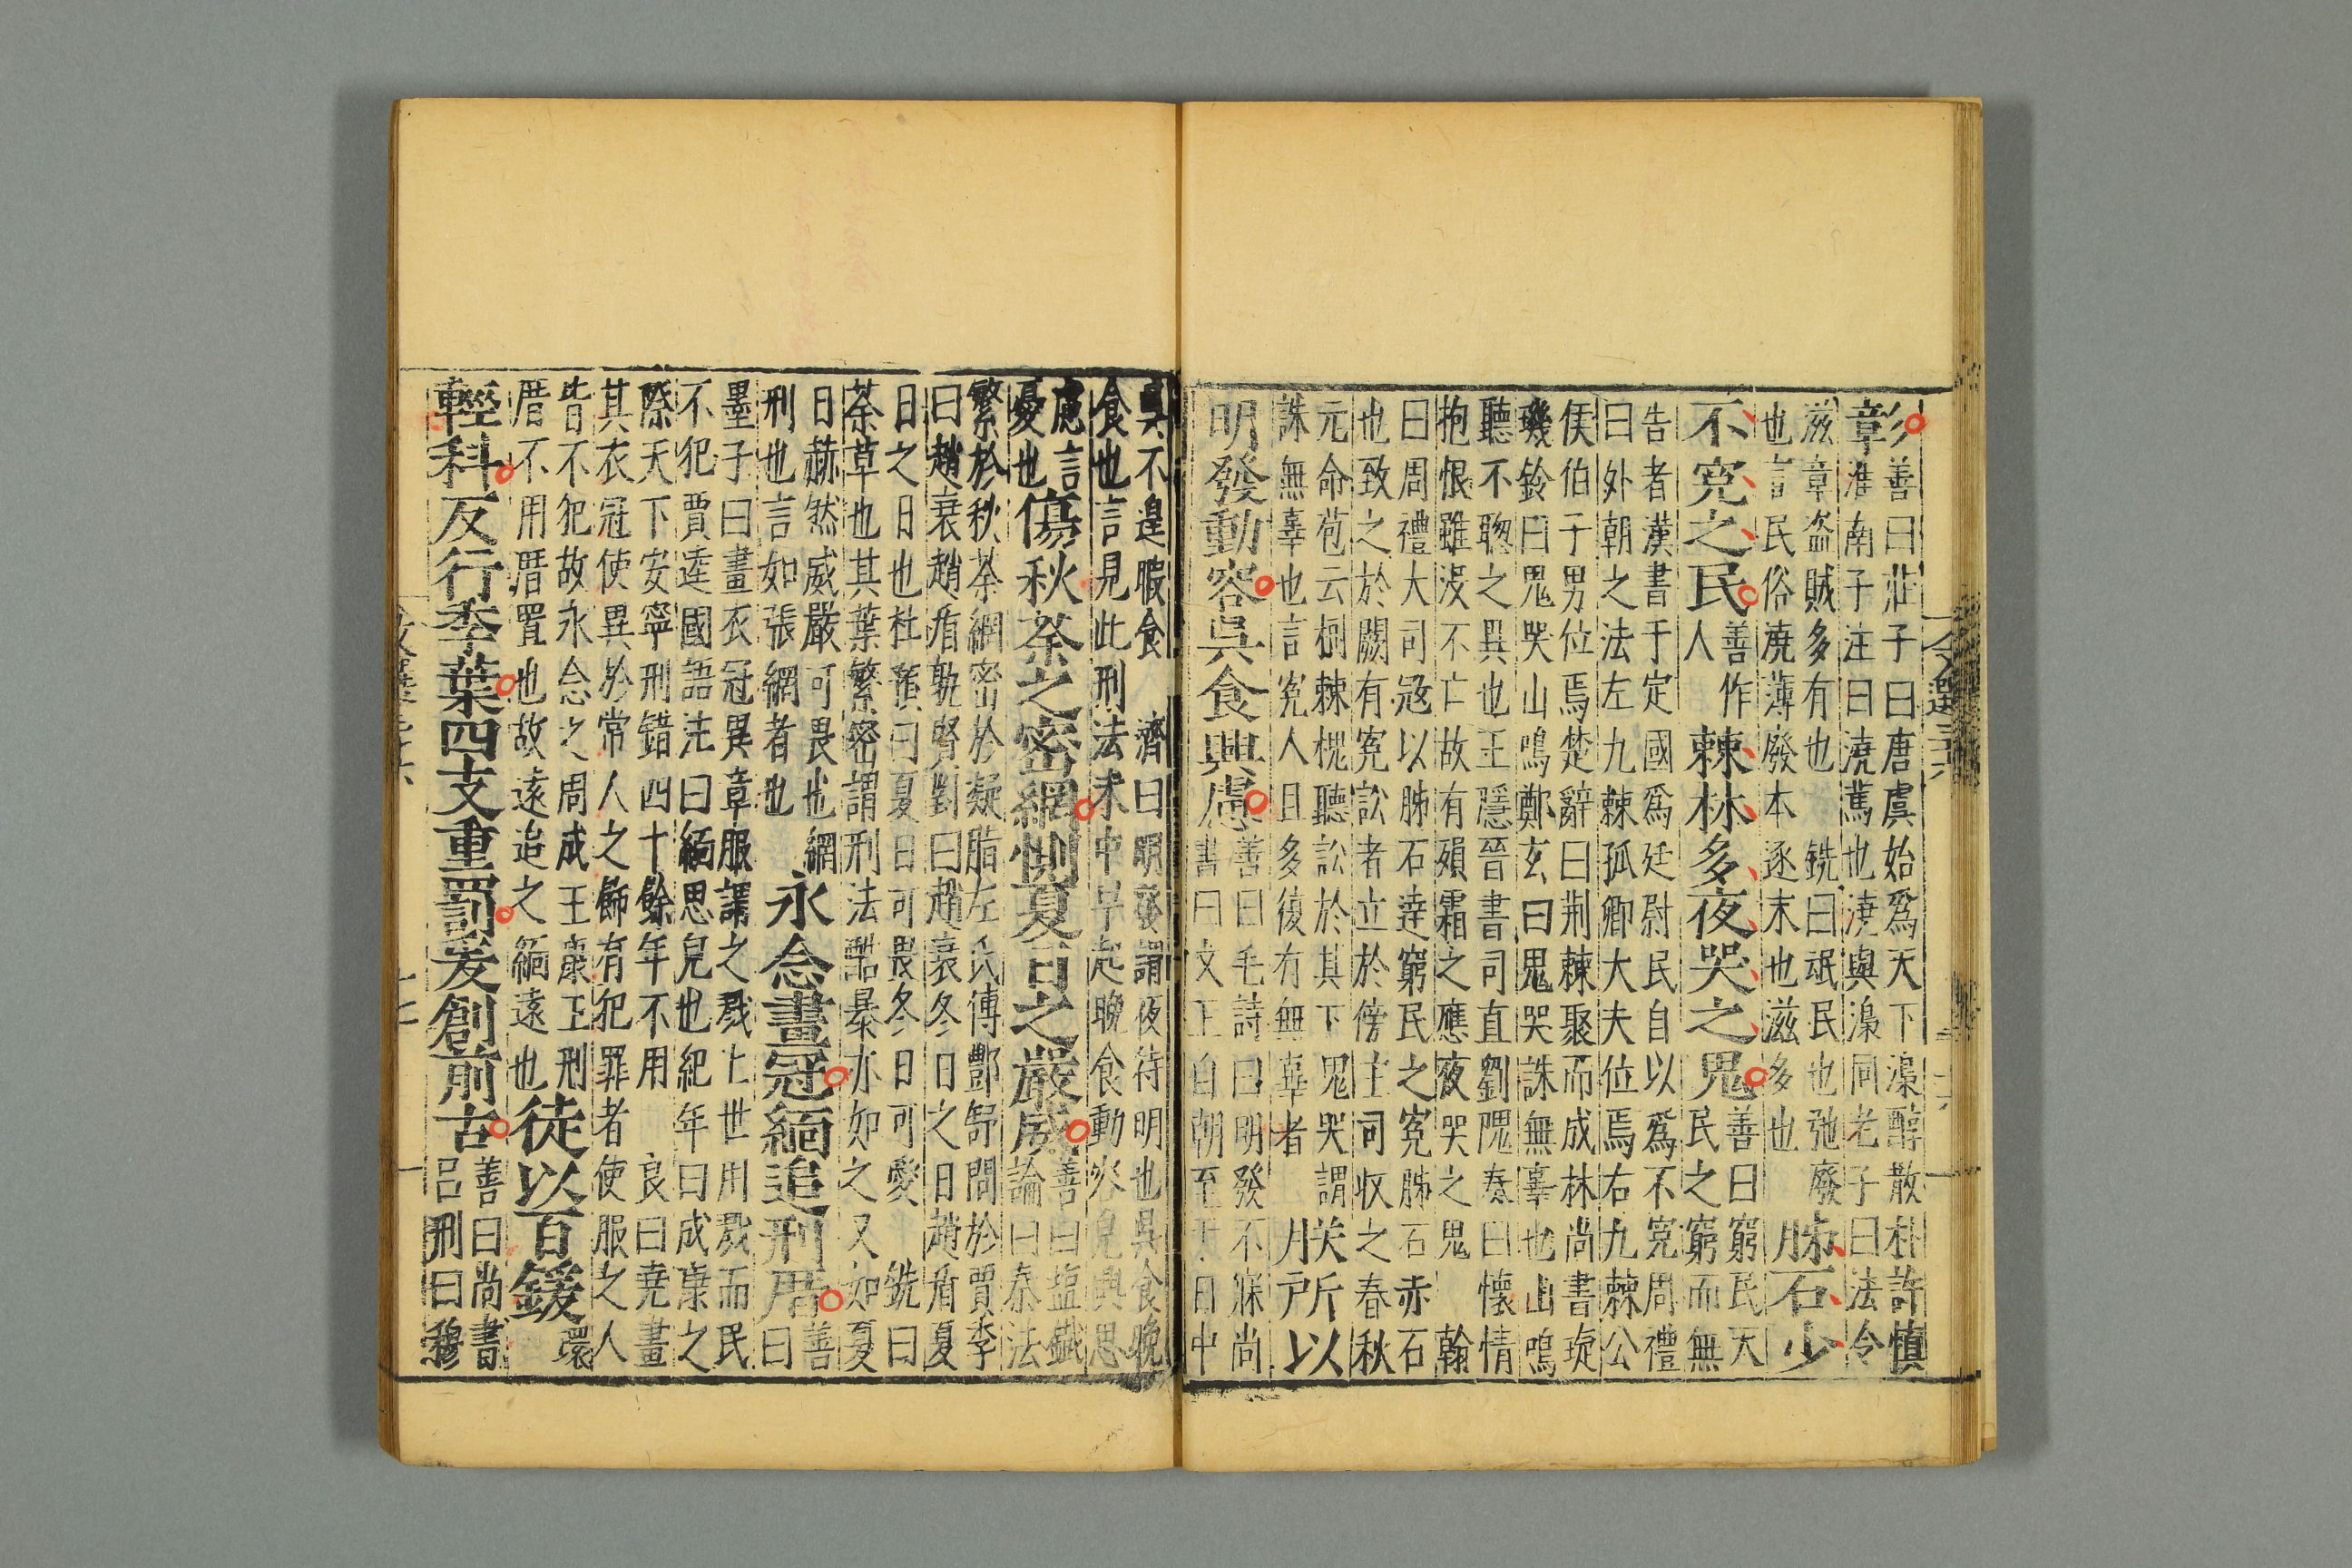 彰
善曰莊子曰唐虞始爲天下澡醇散朴許慎
淮南子注曰澆薄也澆與澡同老子曰法令
滋章盗賊多有也　銑曰氓民也弛廢
也言民俗澆薄廢本逐末也滋多也
肺石少
不寃之民
善作
人
棘林多夜哭之鬼
善曰窮民天
民之窮而無
告者漢書于定國爲廷尉民自以爲不寃周禮
曰外朝之法左九棘孤卿大夫位焉右九棘公
侯伯子男位焉楚辭曰荆棘聚而成林尚書琁
璣鈴曰鬼哭山鳴鄭玄曰鬼哭誅無辜也山鳴
聽不聦之異也王隱晉書司直劉隗奏曰懷情
抱恨雖没不亡故有殞霜之應夜哭之鬼　翰
曰周禮大司寇以肺石達窮民之寃肺石赤石
也致之於闕有寃訟者立於傍主司收之春秋
元命苞云樹棘槐聽訟於其下鬼哭謂
誅無辜也言寃人且多復有無辜者
朕所以
明發動容昃食興慮
善曰毛詩曰明發不寐尚
書曰文王自朝至于日中
昃不遑暇食　濟曰明發謂夜待明也昃食晚
食也言見此刑法未中早起晚食動容皃興思
慮言
憂也
傷秋荼之密網惻夏日之嚴威
善曰塩鐵
論曰秦法
繁於秋荼網密於凝脂左氏傳酆舒問於賈季
曰趙衰趙盾孰賢對曰趙衰冬日之日趙盾夏
日之日也杜預曰夏日可畏冬日可愛　銑曰
荼草也其葉繁密謂刑法酷暴亦如之又如夏
日赫然威嚴可畏也網
刑也言如張網者也
永念畫冠緬追刑厝
善
曰
墨子曰畫衣冠異章服謂之戮上世用戮而民
不犯賈逵國語注曰緬思皃也紀年曰成康之
際天下安寧刑錯四十餘年不用　良曰堯畫
其衣冠使異於常人之飾有犯罪者使服之人
皆不犯故永念之周成王康王刑
厝不用厝置也故遠追之緬遠也
徒以百鍰
環
輕科反行季葉四支重罰爰創前古
善曰尚書
吕刑曰穆